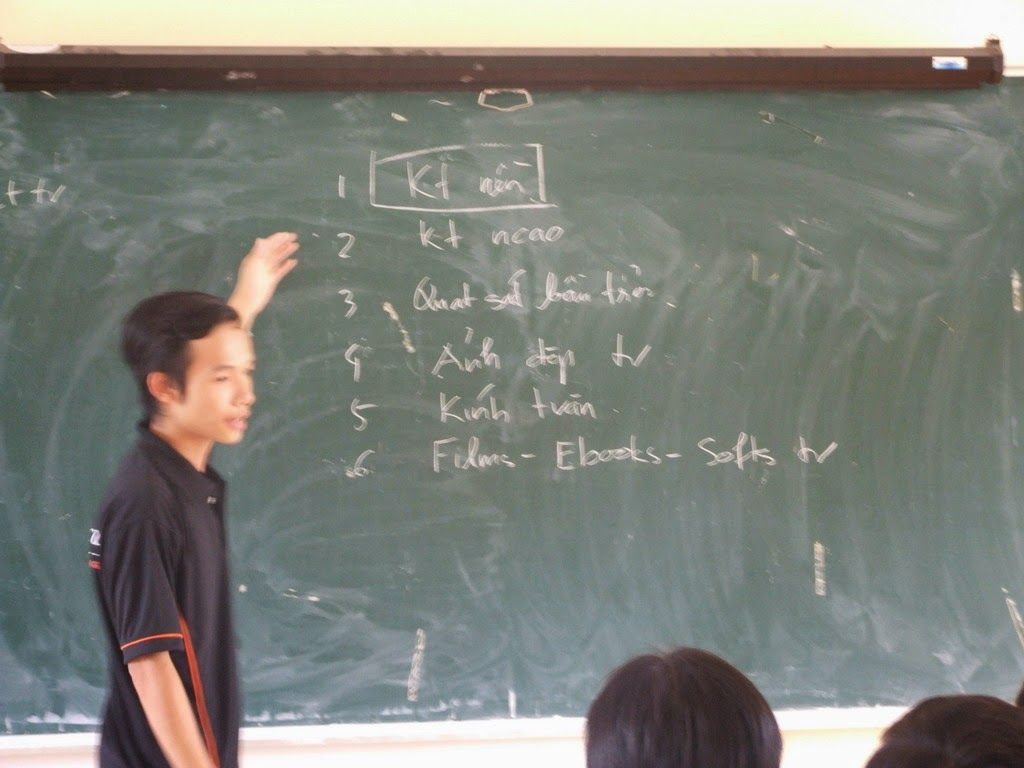 t tv
1 Kt nền
2 kt ncao
3 Quat sát bầu trời
4 Ảnh đẹp tv
5 Kính tvăn
6 Films - Ebooks - Softs tv